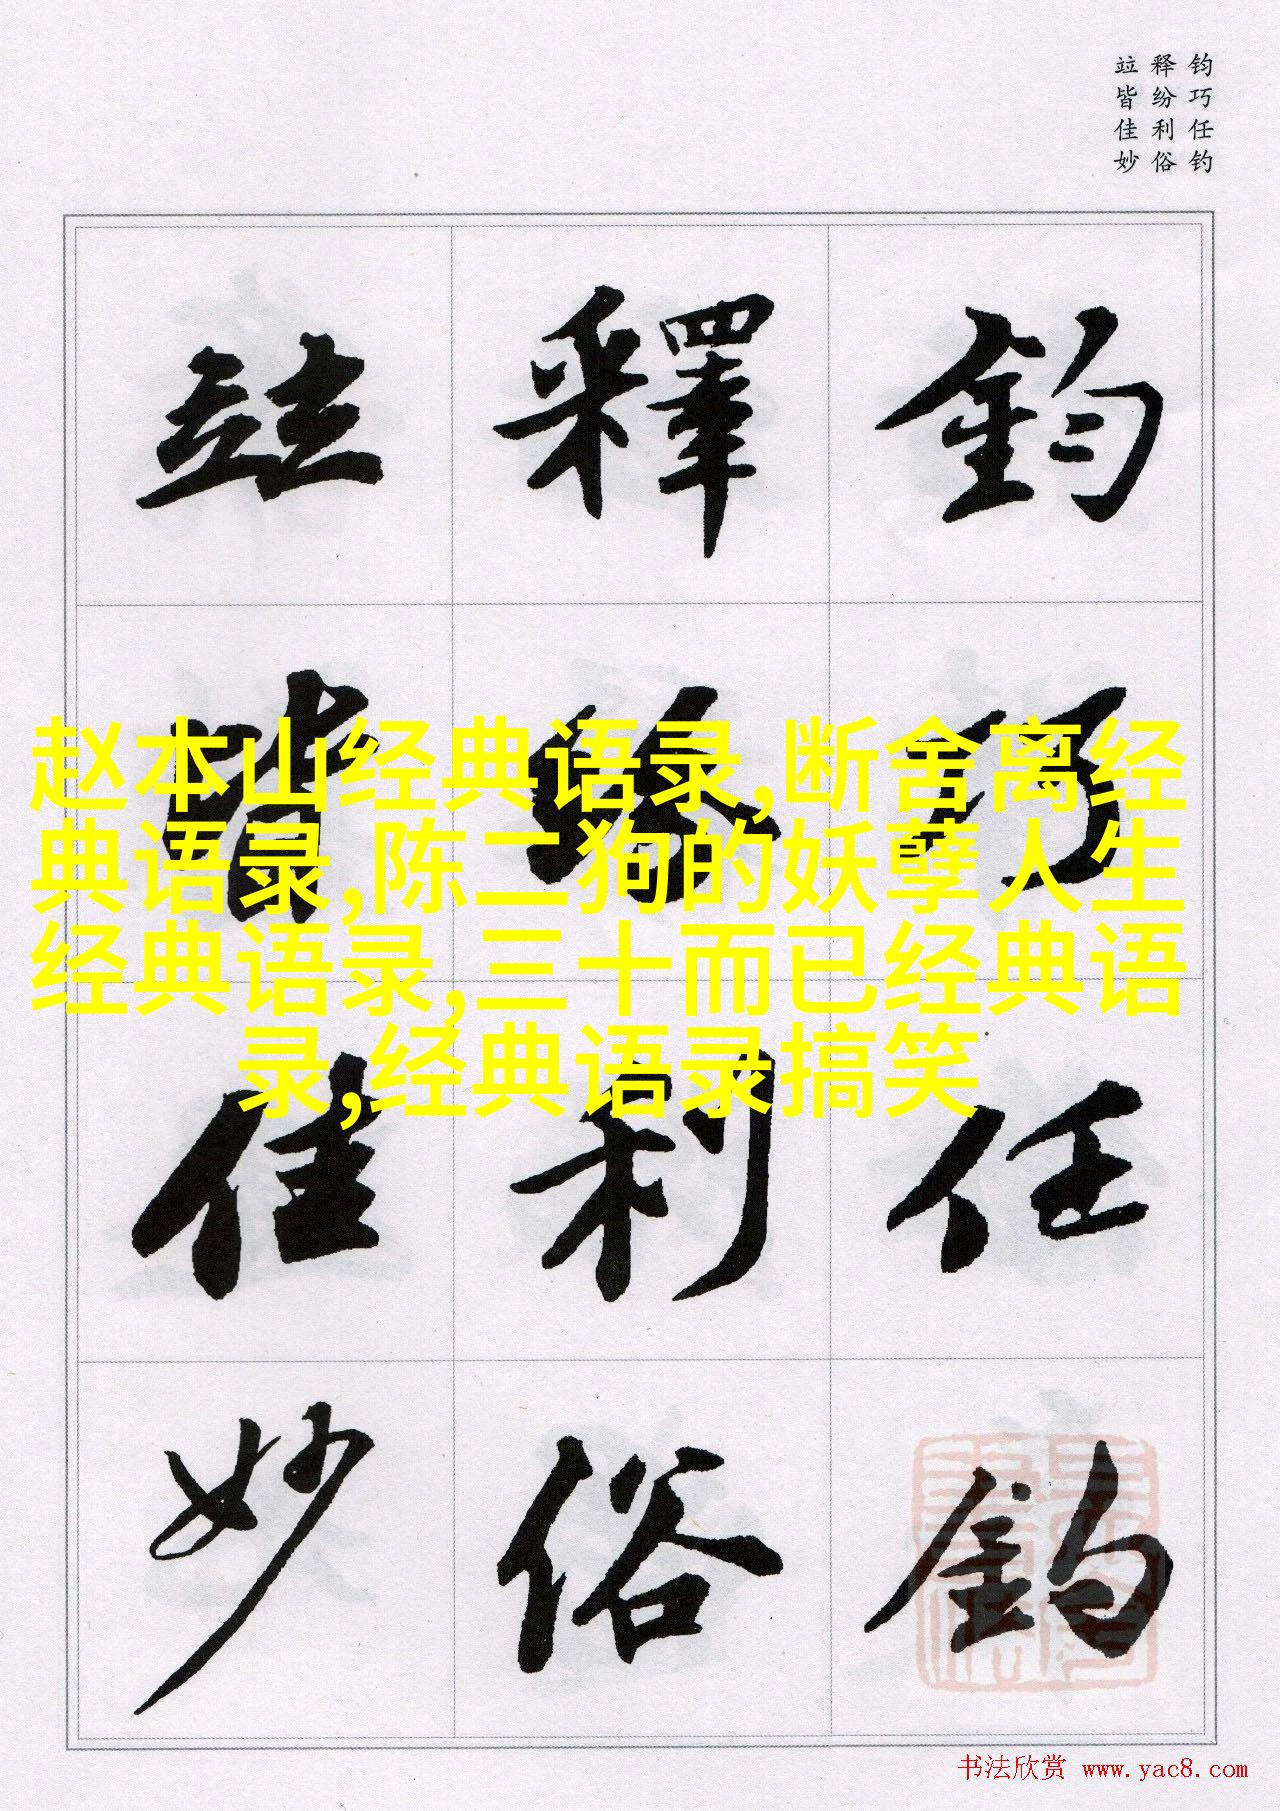 钧巧任钓
释纷利俗
竝皆佳妙
鈞巧任釣
釋紛利俗
竝皆佳妙
赵本山经典语录,断舍离经
典语录,陈二狗的妖孽人生
经典语录,三十而已经典语
录,经典语录搞笑
书法欣赏 www.yac8.com